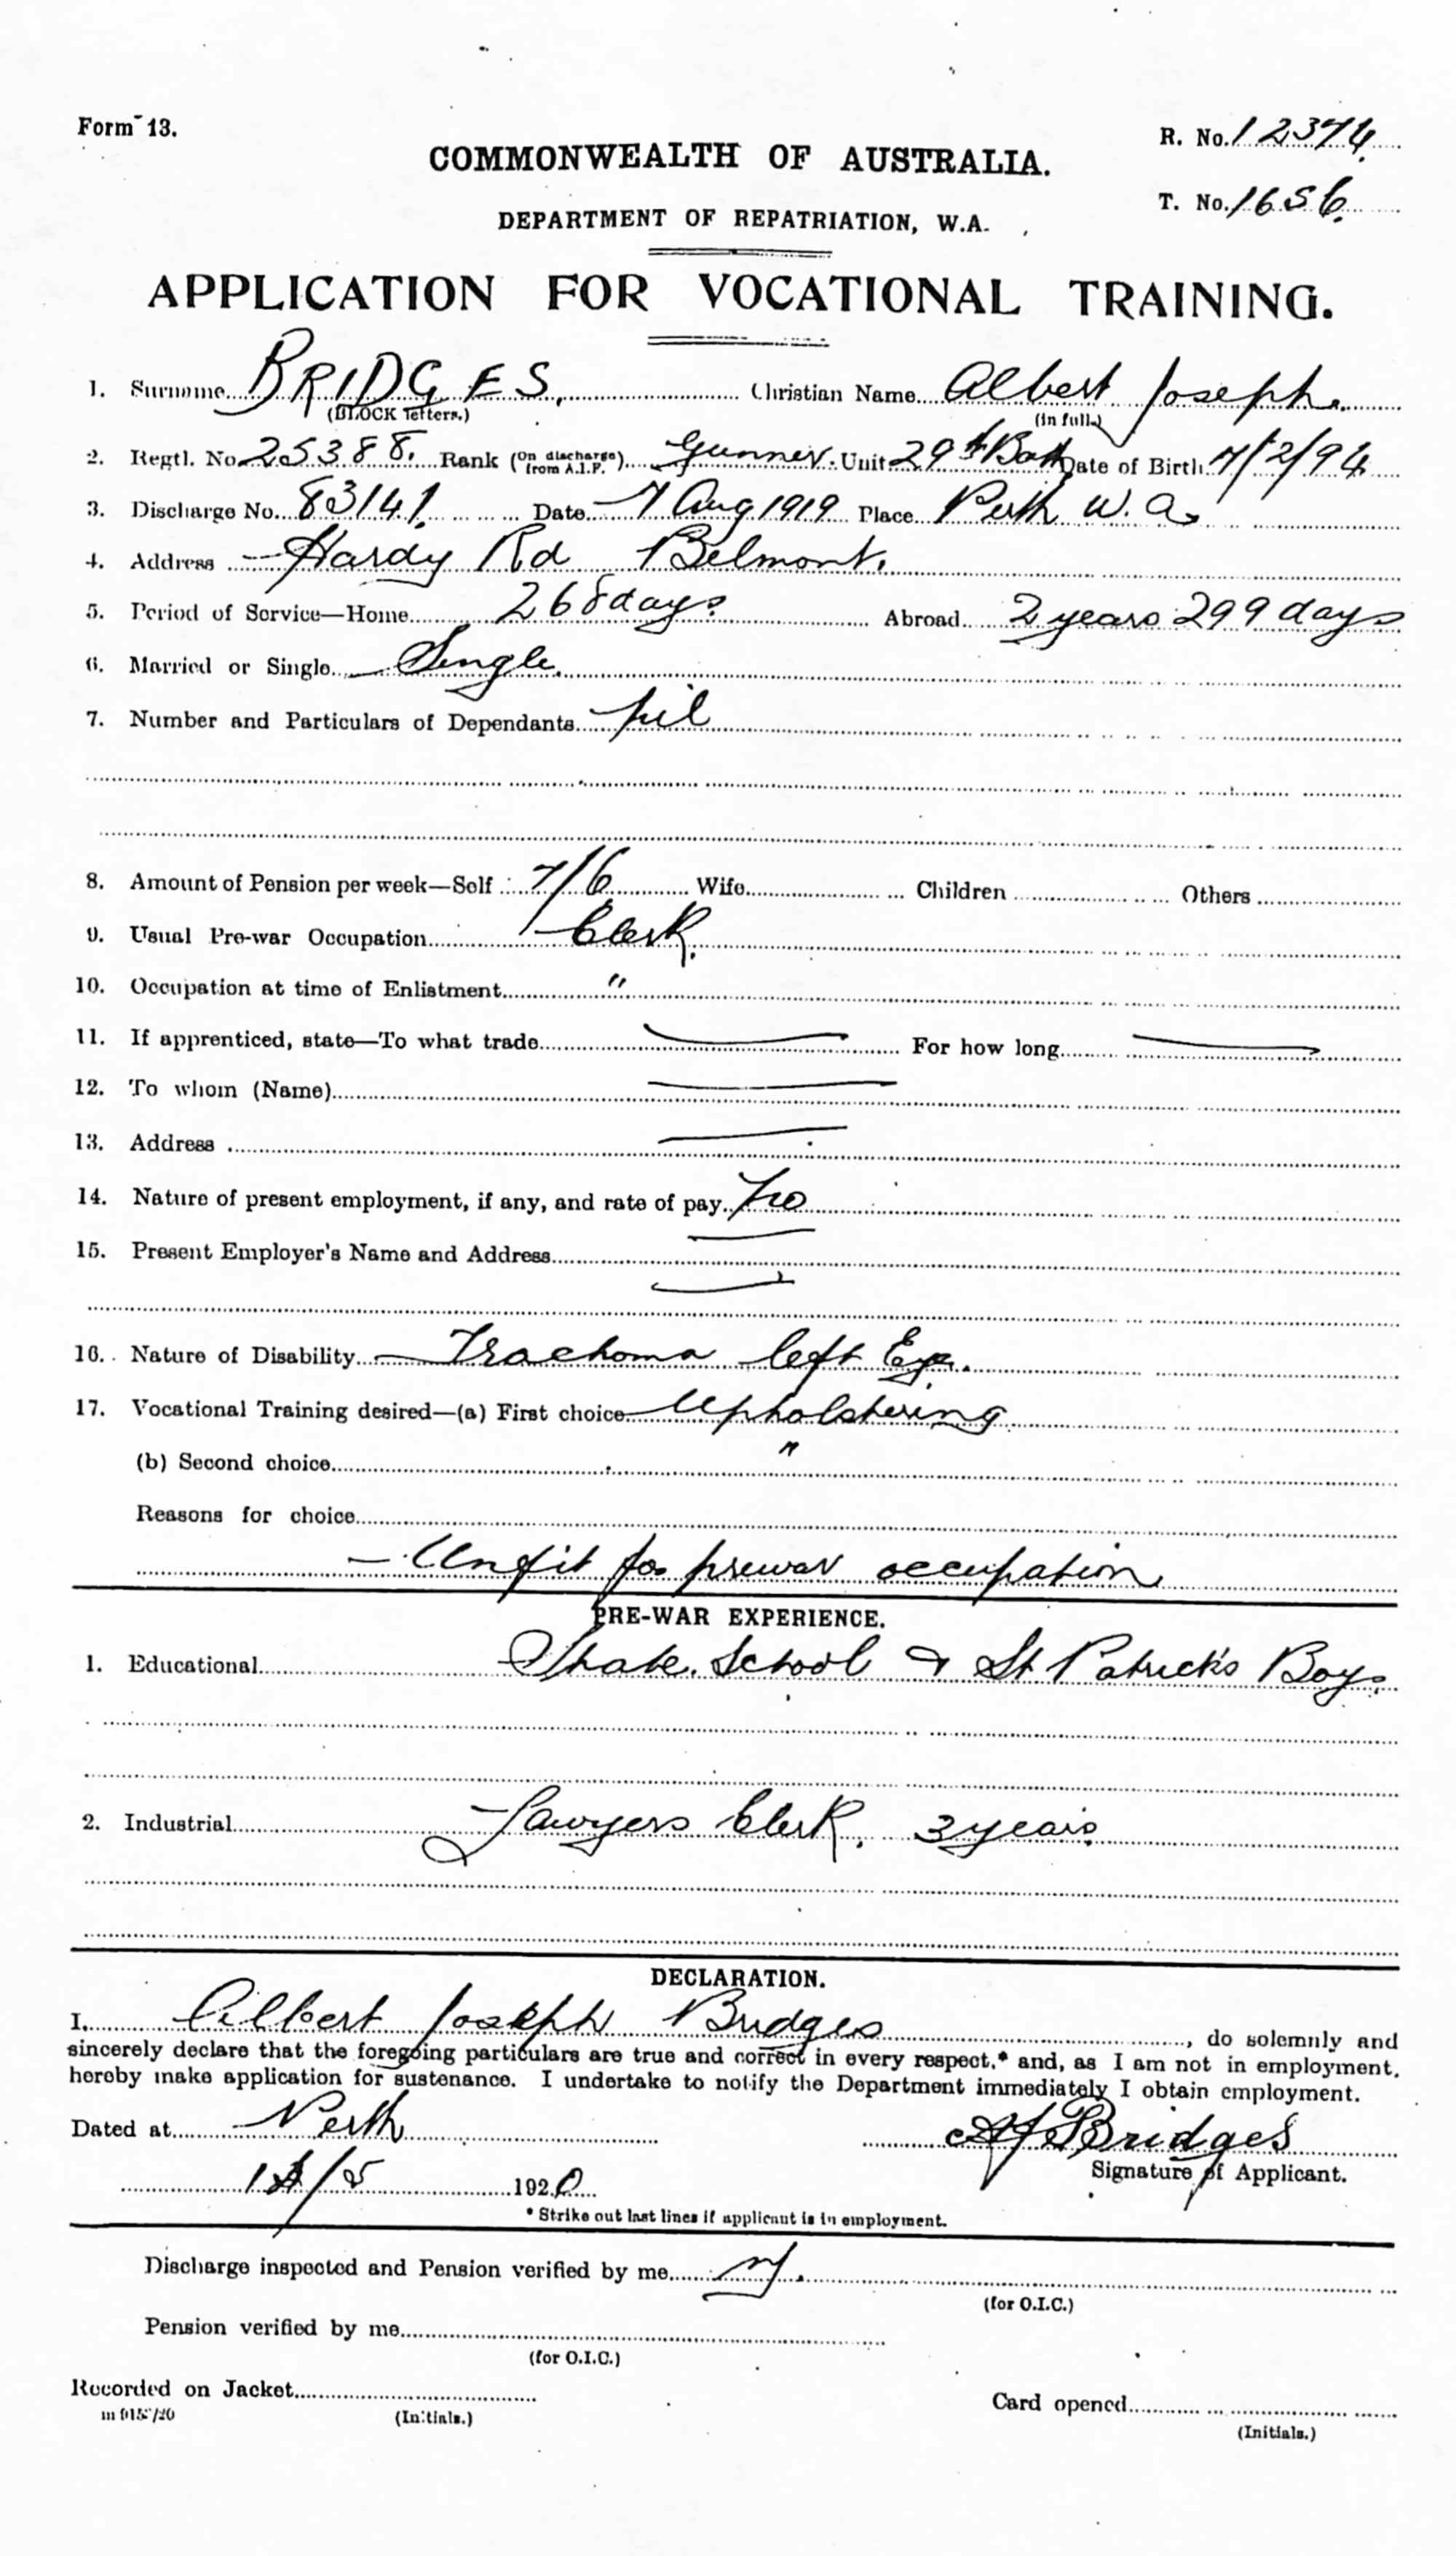 Form 13.
R. No. 12374.
COMMONWEALTH OF AUSTRALIA.
T. No. 1656.
DEPARTMENT OF REPATRIATION, W.A.
APPLICATION FOR VOCATIONAL TRAINING.
1. Surname BRIDGES. Christian Name Albert Joseph.
(BLOCK letters.) (in full.)
2. Regtl. No. 25388. Rank (On discharge from A.I.F.) Gunner. Unit 29th Batt Date of Birth 7/2/94
3. Discharge No. 83141. Date 7 Aug 1919 Place Perth W.A.
4. Address Hardy Rd Belmont.
5. Period of Service—Home 268 days. Abroad 2 years 299 days
6. Married or Single Single.
7. Number and Particulars of Dependants nil
8. Amount of Pension per week—Self 7/6 Wife Children Others
9. Usual Pre-war Occupation Clerk.
10. Occupation at time of Enlistment "
11. If apprenticed, state—To what trade For how long
12. To whom (Name)
13. Address
14. Nature of present employment, if any, and rate of pay. no
15. Present Employer's Name and Address
16. Nature of Disability Trachoma left Eye.
17. Vocational Training desired—(a) First choice Upholstering
(b) Second choice "
Reasons for choice
Unfit for prewar occupation
PRE-WAR EXPERIENCE.
1. Educational State School & St Patrick's Boys.
2. Industrial Lawyers Clerk. 3 years.
DECLARATION.
I, Albert Joseph Bridges, do solemnly and
sincerely declare that the foregoing particulars are true and correct in every respect,* and, as I am not in employment,
hereby make application for sustenance. I undertake to notify the Department immediately I obtain employment.
Dated at Perth AJ Bridges
Signature of Applicant.
/5 1920
* Strike out last lines if applicant is in employment.
Discharge inspected and Pension verified by me
(for O.I.C.)
Pension verified by me
(for O.I.C.)
Recorded on Jacket
Card opened
(Initials.)
(Initials.)